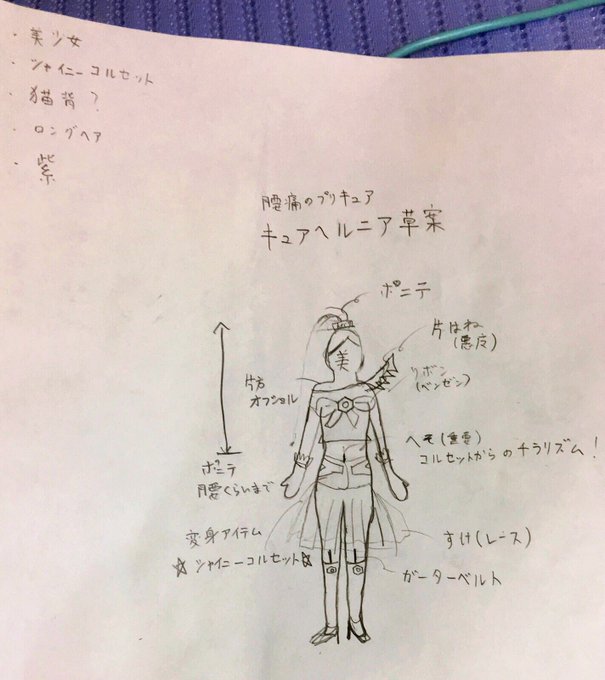 ・美少女
・シャイニーコルセット
・猫背？
・ロングヘア
・紫
腰痛のプリキュア
キュアヘルニア草案
ポニテ
片はね
(悪皮)
リボン
(ベンゼン)
美
片方
オフショル
ヘそ(重要)
コルセットからのチラリズム!
ポニテ
腰くらいまで
変身アイテム
☆シャイニーコルセット☆
すけ(レース)
ガーターベルト